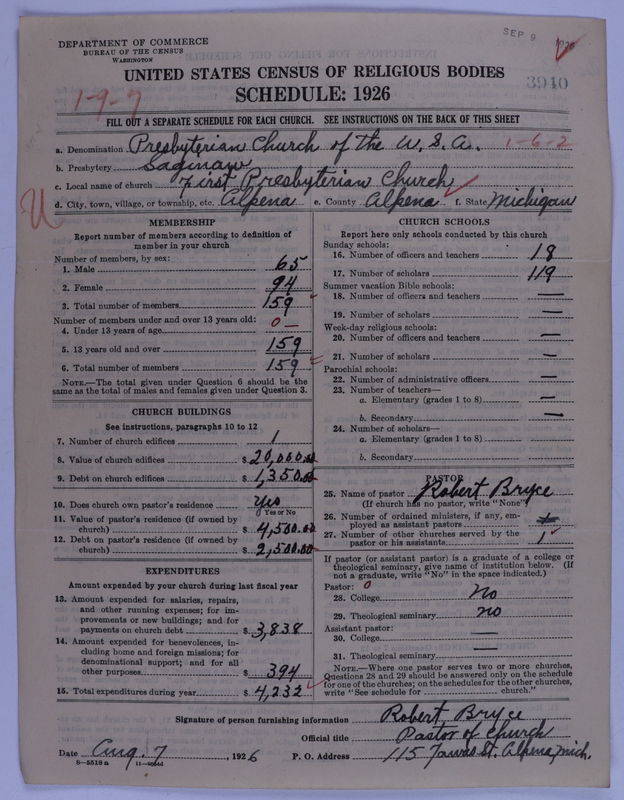 SEP 9
DEPARTMENT OF COMMERCE
BUREAU OF THE CENSUS
WASHINGTON
UNITED STATES CENSUS OF RELIGIOUS BODIES
SCHEDULE: 1926
3940
1-9-7
FILL OUT A SEPARATE SCHEDULE FOR EACH CHURCH. SEE INSTRUCTIONS ON THE BACK OF THIS SHEET
a. Denomination Presbyterian Church of the U.S.A. 1-6-2
b. Presbytery Saginaw
c. Local name of church First Presbyterian Church
d. City, town, village, or township, etc. Alpena e. County Alpena f. State Michigan
MEMBERSHIP
Report number of members according to definition of
member in your church
Number of members, by sex:
1. Male 65
2. Female 94
3. Total number of members 159
Number of members under and over 13 years old:
4. Under 13 years of age 0 —
5. 13 years old and over 159
6. Total number of members 159
NOTE.—The total given under Question 6 should be the
same as the total of males and females given under Question 3.
CHURCH BUILDINGS
See instructions, paragraphs 10 to 12
7. Number of church edifices 1
8. Value of church edifices $20,000.00
9. Debt on church edifices $1,350.00
10. Does church own pastor's residence yes
(Yes or No)
11. Value of pastor's residence (if owned by
church) $4,500.00
12. Debt on pastor's residence (if owned by
church) $2,500.00
EXPENDITURES
Amount expended by your church during last fiscal year
13. Amount expended for salaries, repairs,
and other running expenses; for im-
provements or new buildings; and for
payments on church debt $3,838
14. Amount expended for benevolences, in-
cluding home and foreign missions; for
denominational support; and for all
other purposes $394
15. Total expenditures during year $4,232
CHURCH SCHOOLS
Report here only schools conducted by this church
Sunday schools:
16. Number of officers and teachers 18
17. Number of scholars 119
Summer vacation Bible schools:
18. Number of officers and teachers —
19. Number of scholars —
Week-day religious schools:
20. Number of officers and teachers —
21. Number of scholars —
Parochial schools:
22. Number of administrative officers —
23. Number of teachers—
a. Elementary (grades 1 to 8) —
b. Secondary —
24. Number of scholars—
a. Elementary (grades 1 to 8)
b. Secondary
PASTOR
25. Name of pastor Robert Bryce
(If church has no pastor, write "None")
26. Number of ordained ministers, if any, em-
ployed as assistant pastors
27. Number of other churches served by the
pastor or his assistants 1
If pastor (or assistant pastor) is a graduate of a college or
theological seminary, give name of institution below. (If
not a graduate, write "No" in the space indicated.)
Pastor: 0
28. College No
29. Theological seminary no
Assistant pastor:
30. College —
31. Theological seminary —
NOTE.—Where one pastor serves two or more churches,
Questions 28 and 29 should be answered only on the schedule
for one of the churches; on the schedules for the other churches,
write "See schedule for church."
Signature of person furnishing information Robert Bryce
Official title Pastor of Church
Date Aug. 7, 1926 P. O. Address 115 Tawas St. Alpena, Mich.
8—5519 a